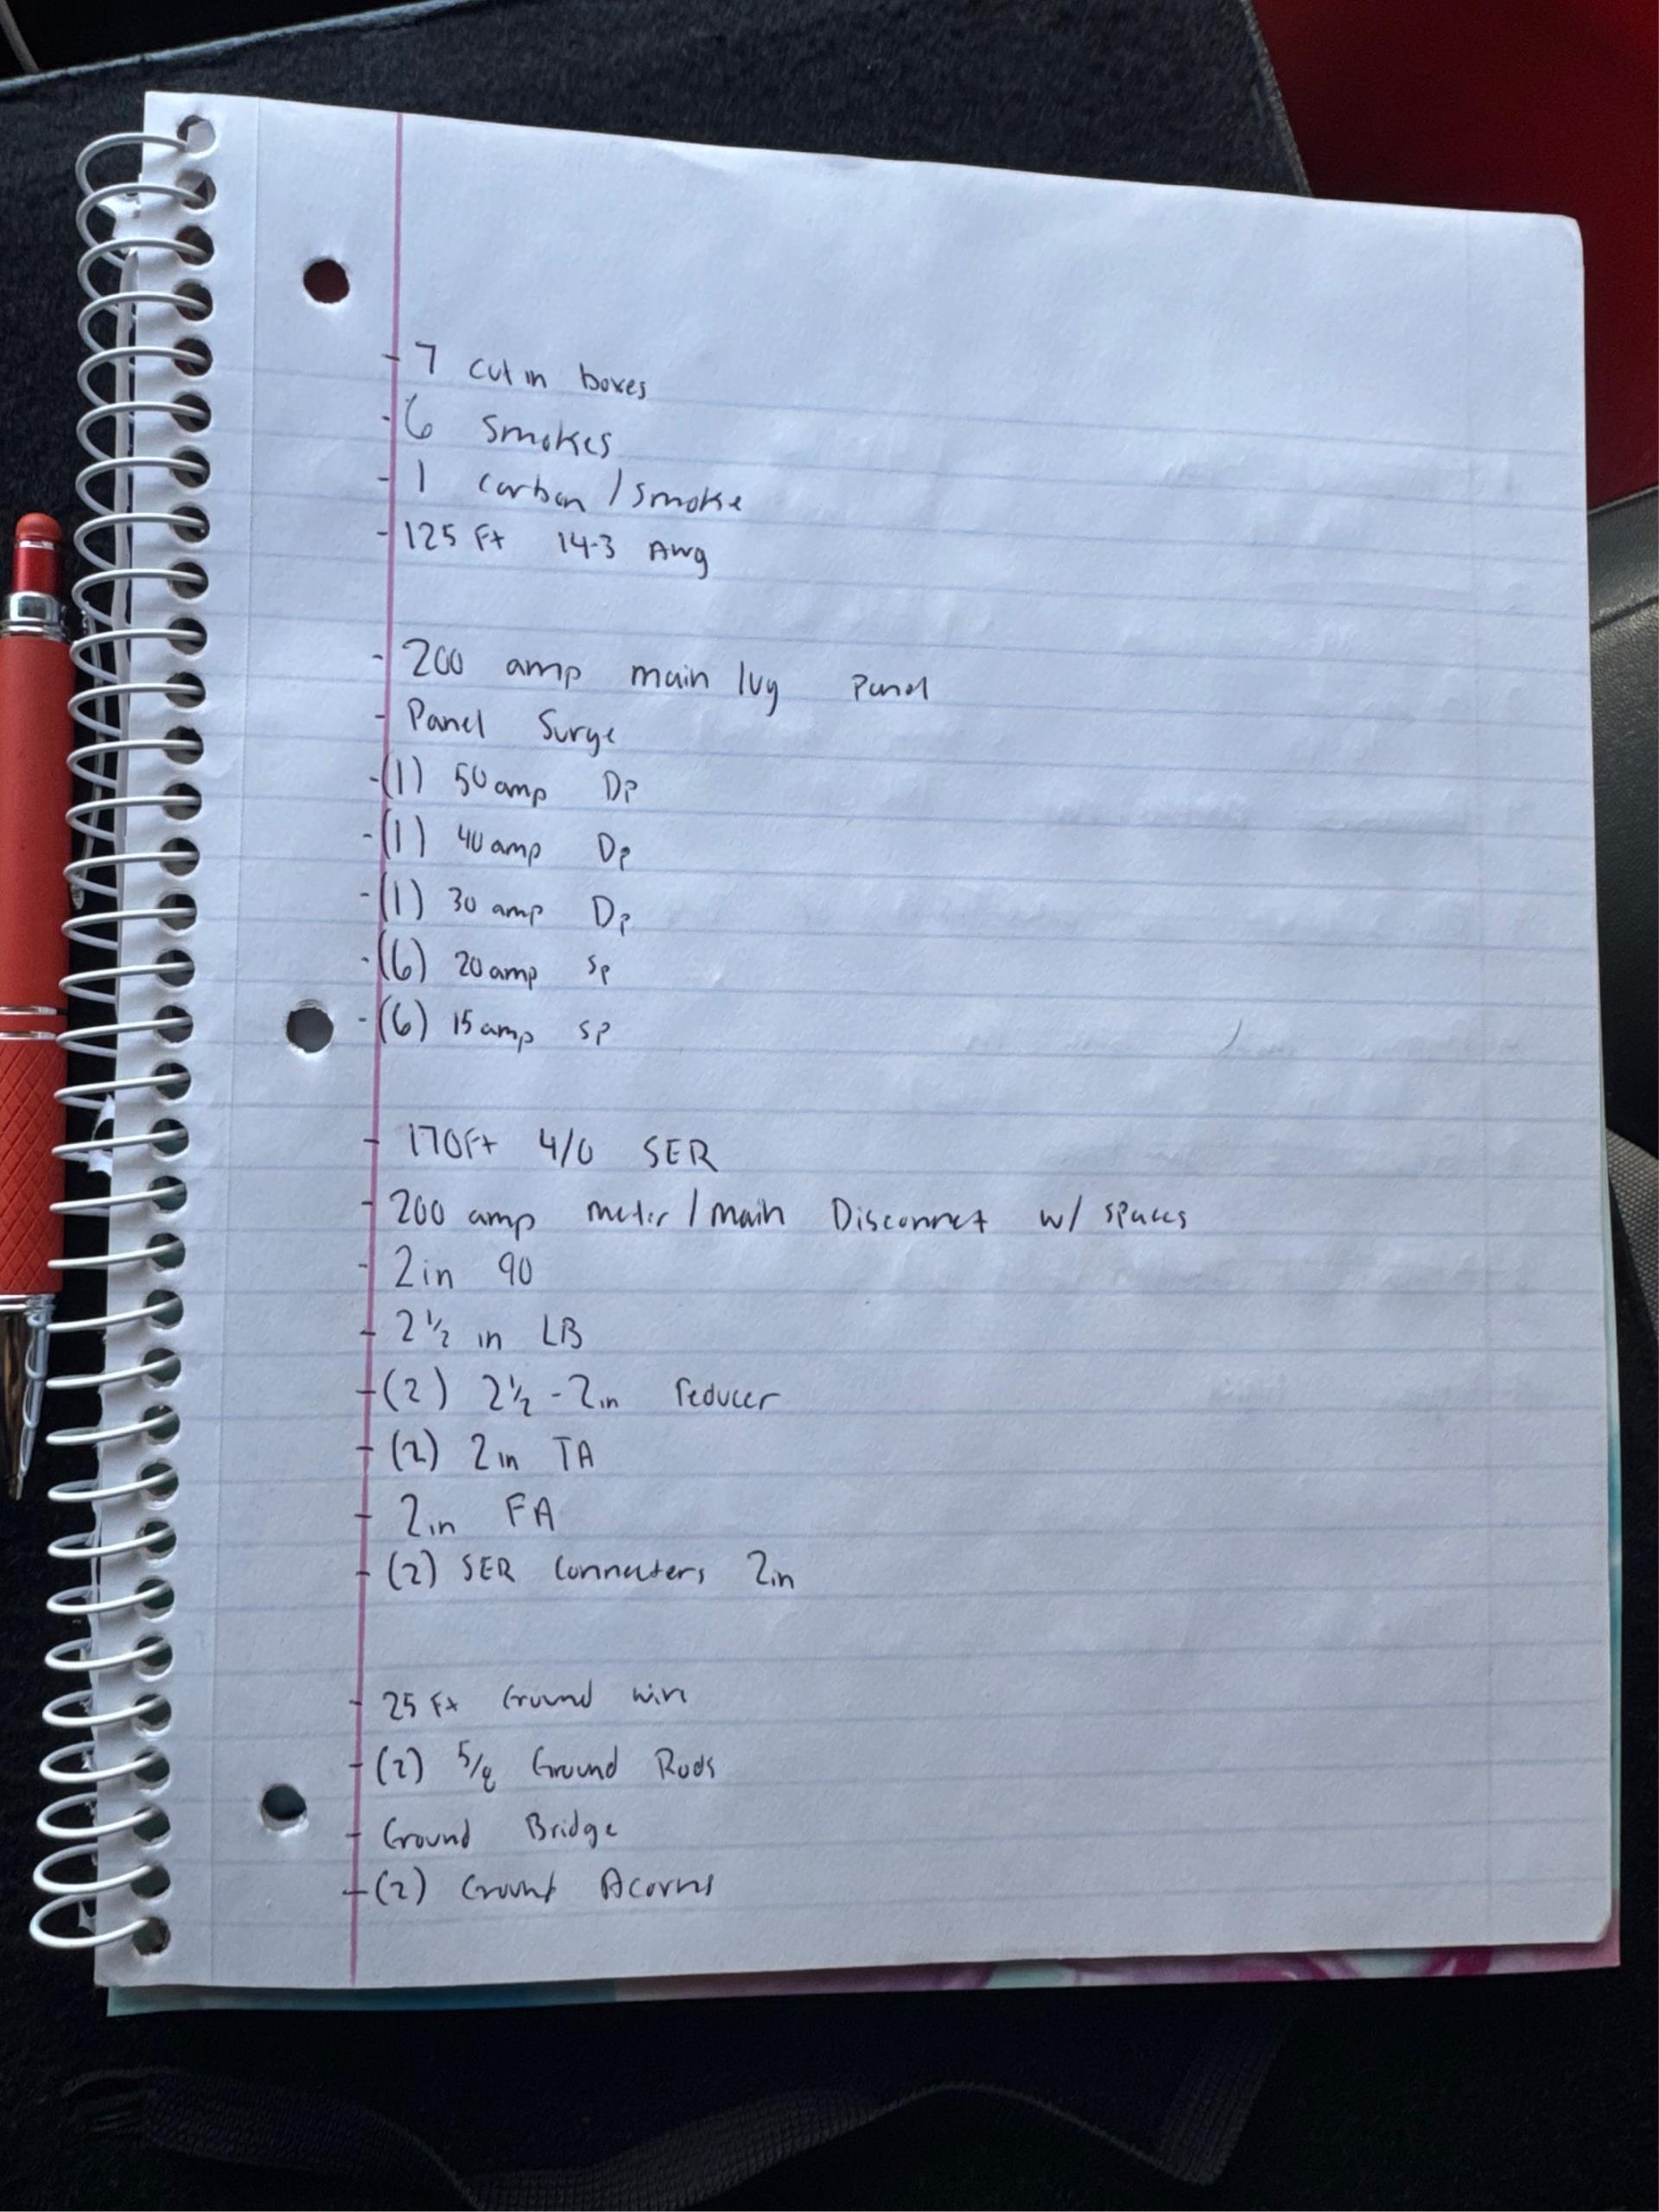 - 7 cut in boxes
- 6 smokes
- 1 carbon / smoke
- 125 Ft 14-3 Awg
- 200 amp main lug Panel
- Panel Surge
- (1) 50 amp DP
- (1) 40 amp DP
- (1) 30 amp DP
- (6) 20 amp SP
- (6) 15 amp SP
- 170 Ft 4/0 SER
- 200 amp meter / main Disconnect w/ spaces
- 2 in 90
- 2 1/2 in LB
- (2) 2 1/2 - 2 in reducer
- (2) 2 in TA
- 2 in FA
- (2) SER Connecters 2in
- 25 Ft Ground wire
- (2) 5/8 Ground Rods
- Ground Bridge
- (2) Ground Acorns